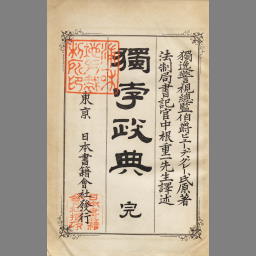 獨逸警視總監伯爵ヒユーデグレー氏原著
法制局書記官中根重一先生譯述
獨孛政典 完
東京 日本書籍會社發行